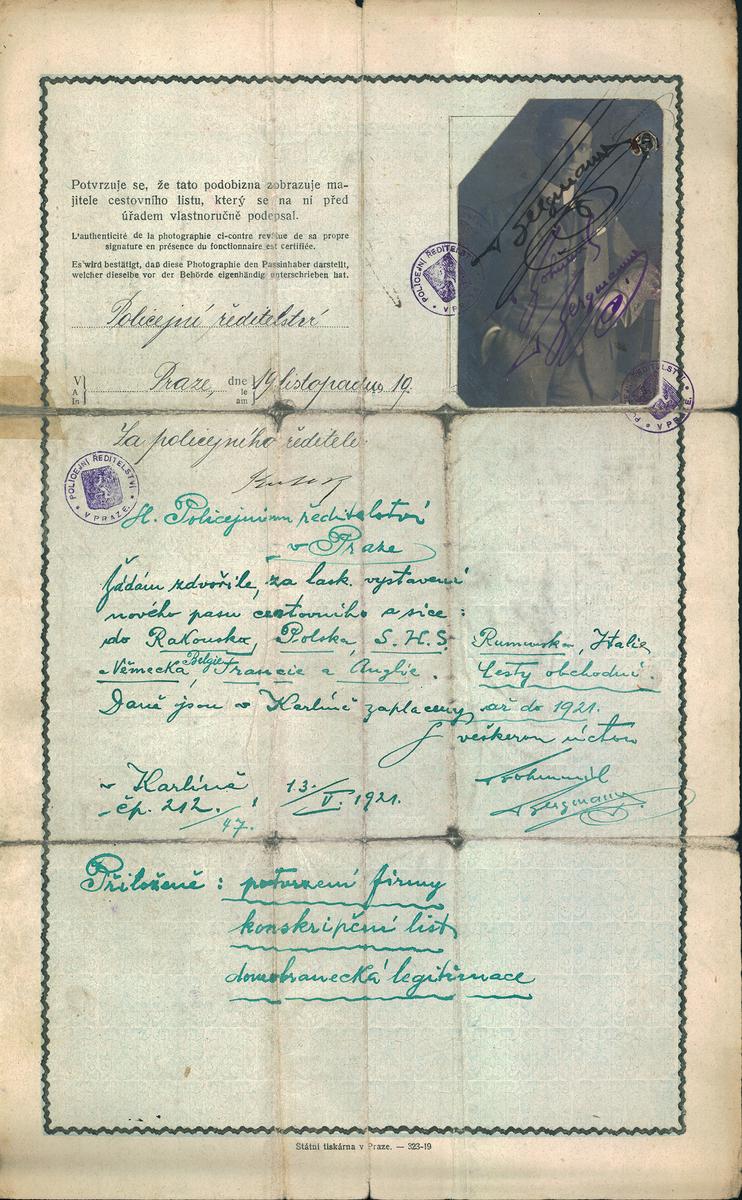 Potvrzuje se, že tato podobizna zobrazuje ma-
jitele cestovního listu, který se na ní před
úřadem vlastnoručně podepsal.
L'authenticité de la photographie ci-contre revêtue de sa propre
signature en présence du fonctionnaire est certifiée.
Es wird bestätigt, daß diese Photographie den Passinhaber darstellt,
welcher dieselbe vor der Behörde eigenhändig unterschrieben hat.
Policejní ředitelství
V
A
In
Praze, dne 19 listopadu 19.
le
am
Za policejního ředitele:
Bergmann
Bohumil
Bergmann
POLICEJNÍ ŘEDITELSTVÍ
V PRAZE.
POLICEJNÍ ŘEDITELSTVÍ
V PRAZE.
POLICEJNÍ ŘEDITELSTVÍ
V PRAZE.
Sl. Policejnímu ředitelství
v Praze
Žádám zdvořile, za lask. vystavení
nového pasu cestovního a sice:
do Rakouska, Polska, S. H. S. Rumunska, Italie,
Německa Belgie Francie a Anglie. Cesty obchodní.
Daně jsou v Karlíně zaplaceny až do 1921.
S veškerou úctou
v Karlíně 13./V. 1921.
čp. 212./47.
Bohumil
Bergmann
Přiloženě: potvrzení firmy
konskripční list
domobranecká legitimace
Státní tiskárna v Praze. — 323-19